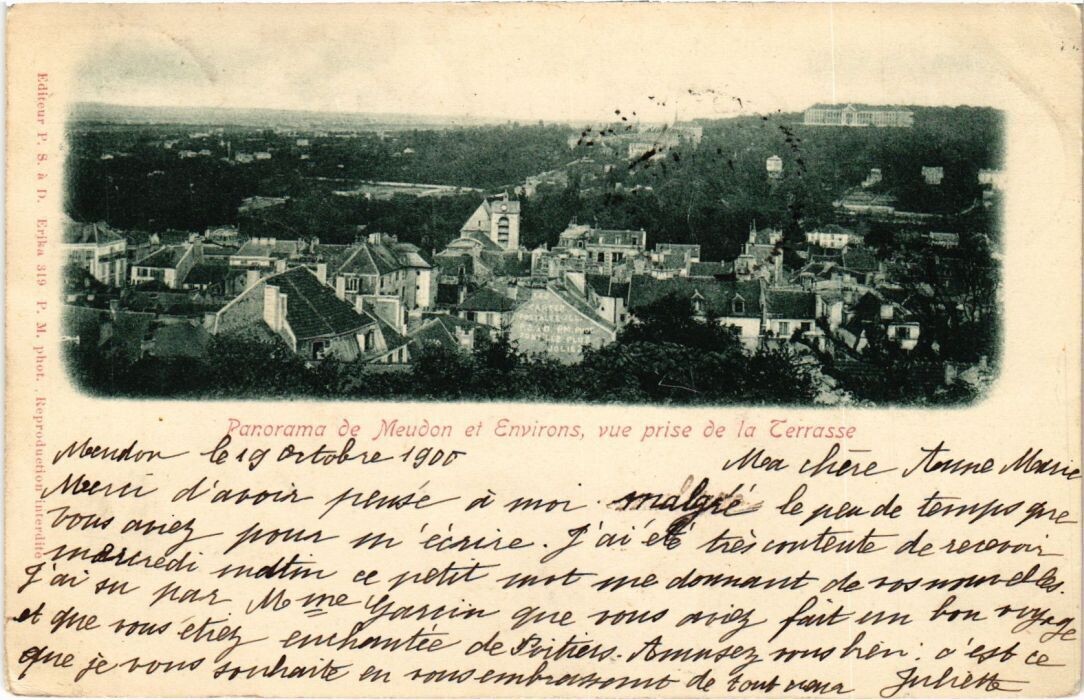 Editeur P. S. à D. Erika 319 P. M. phot., Reproduction interdite
LES
CARTES
POSTALES
P.S.à D. P.M. PHOT.
SONT LES PLUS
JOLIES
Panorama de Meudon et Environs, vue prise de la Terrasse
Meudon le 19 Octobre 1900 Ma chère Anne Marie
Merci d'avoir pensé à moi malgré le peu de temps que
vous aviez pour m'écrire. J'ai été très contente de recevoir
mercredi matin ce petit mot me donnant de vos nouvelles.
J'ai su par Mme Garcin que vous aviez fait un bon voyage
et que vous étiez enchantée de Poitiers. Amusez vous bien: c'est ce
que je vous souhaite en vous embrassant de tout cœur Juliette